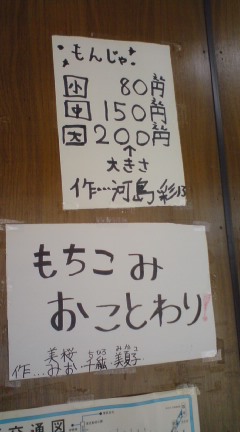 もんじゃ
小 80円
中 150円
大 200円
↑
大きさ
作…河島 彩
もちこみ
おことわり!
美桜 ちひろ みなつ
作…みお 千紘 美夏子
交通図